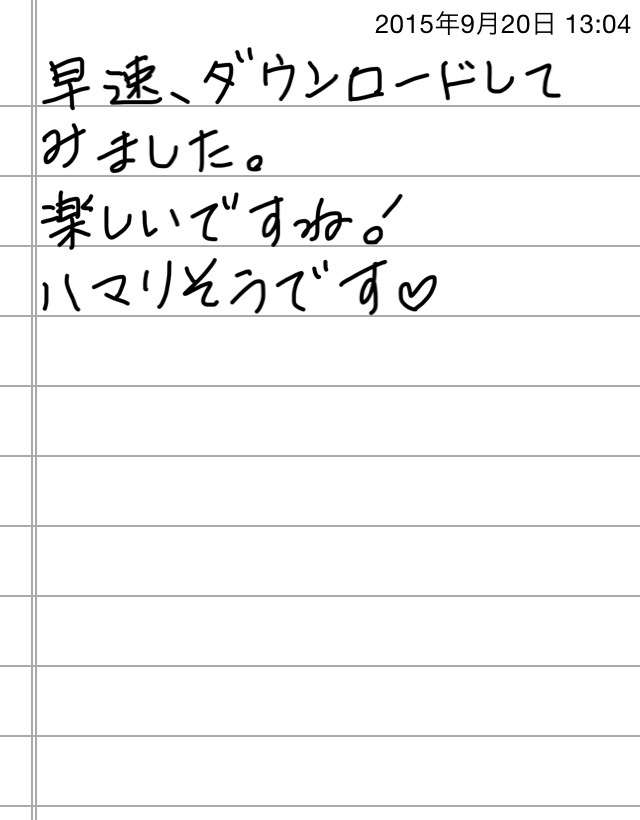 2015年9月20日 13:04
早速、ダウンロードして
みました。
楽しいですね!
ハマりそうです♡